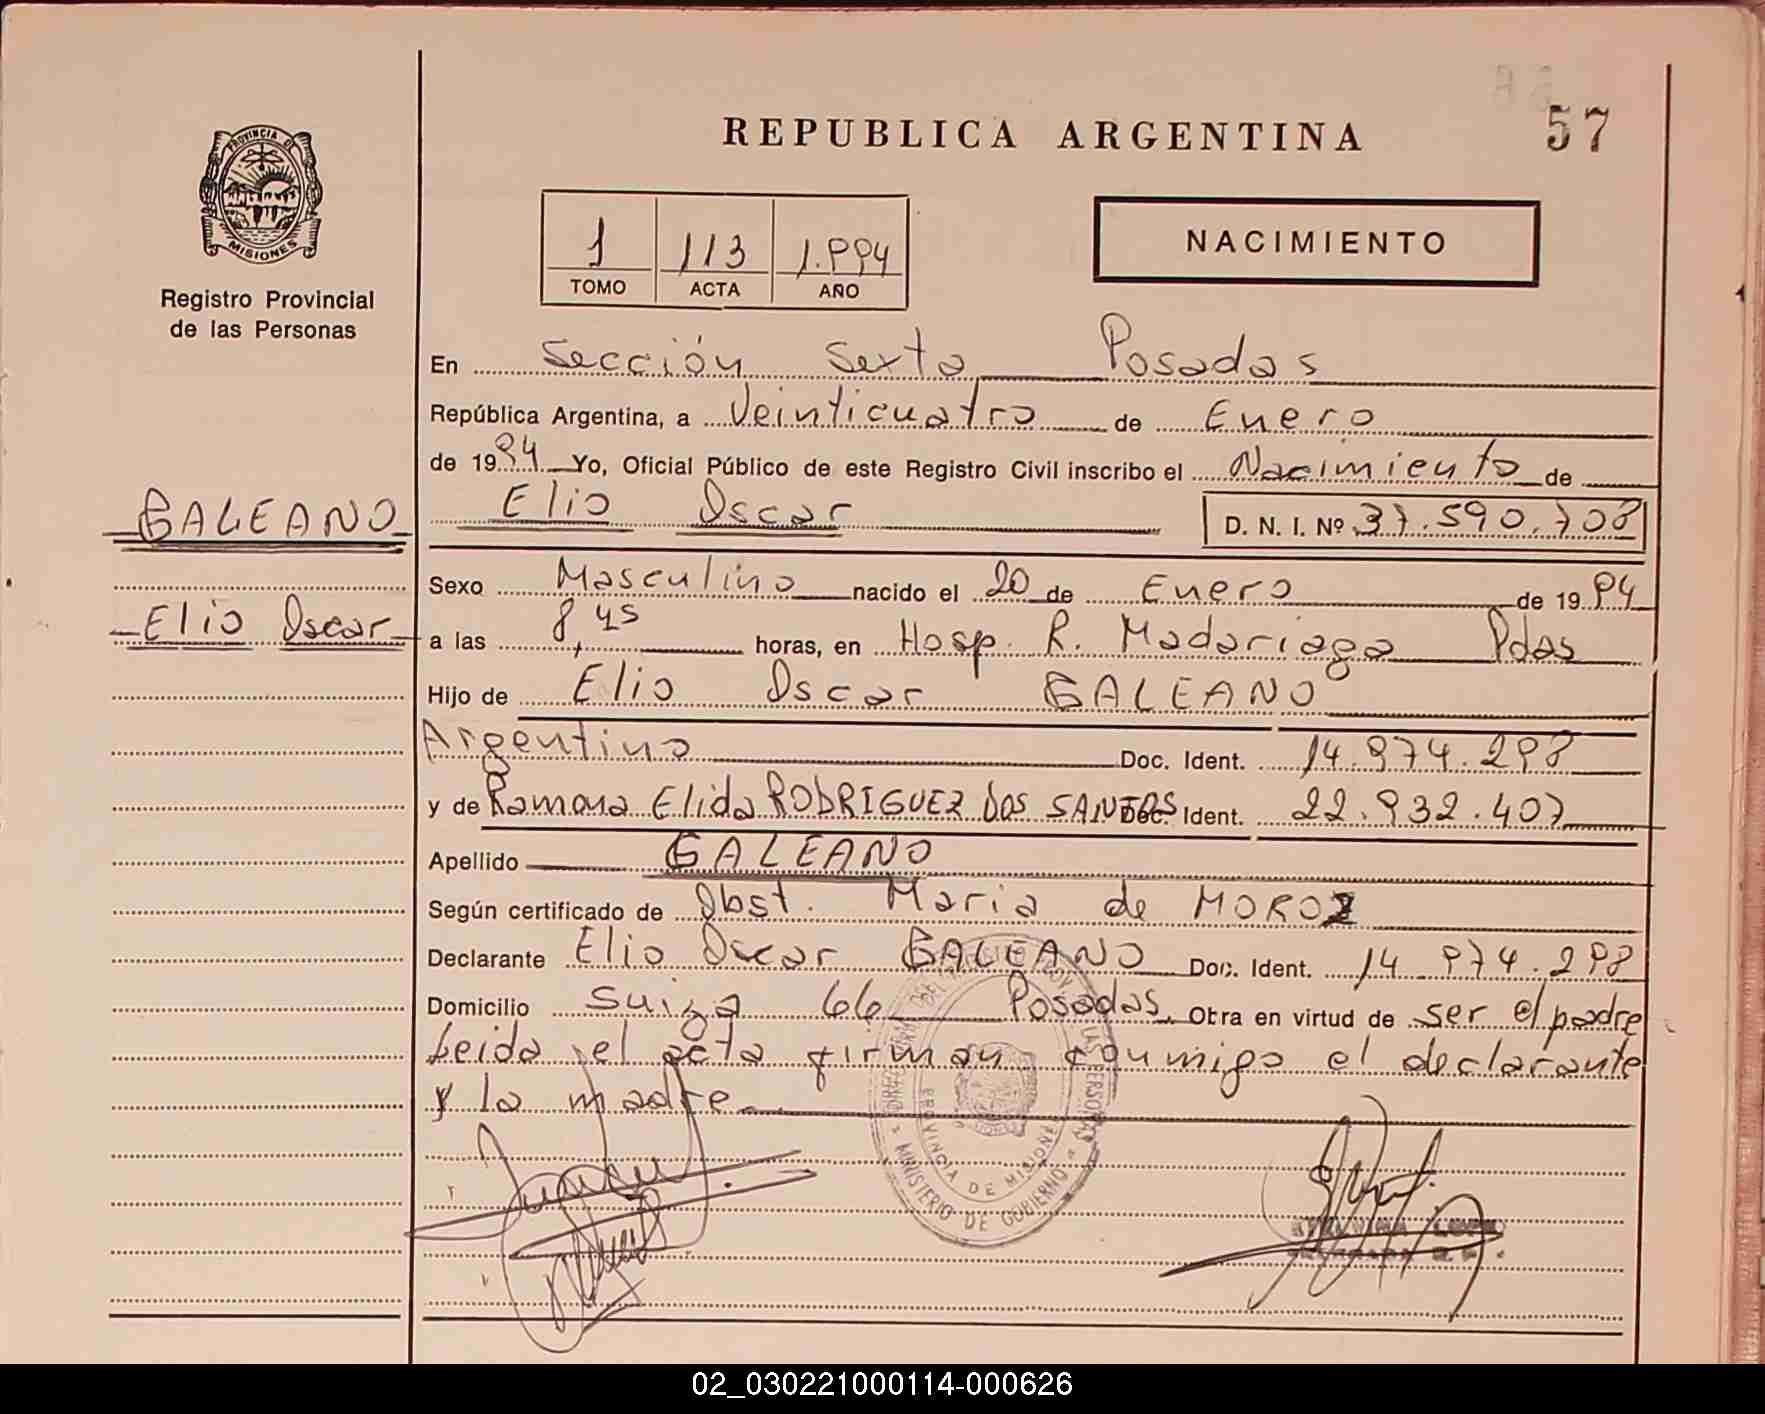 REPUBLICA ARGENTINA
57
PROVINCIA DE
MISIONES
Registro Provincial
de las Personas
1 113 1.994
TOMO ACTA AÑO
NACIMIENTO
En Sección Sexta Posadas
República Argentina, a Veinticuatro de Enero
de 1994 Yo, Oficial Público de este Registro Civil inscribo el Nacimiento de
GALEANO
Elio Oscar D. N. I. Nº 37.590.708
Sexo Masculino nacido el 20 de Enero de 1994
Elio Oscar
a las 8,45 horas, en Hosp. R. Madariaga Pdas
Hijo de Elio Oscar GALEANO
Argentino Doc. Ident. 14.974.298
y de Ramona Elida RODRIGUEZ DOS SANTOS Doc. Ident. 22.932.407
Apellido GALEANO
Según certificado de Obst. Maria de MOROZ
Declarante Elio Oscar GALEANO Doc. Ident. 14 974.298
Domicilio Suiza 66 Posadas, Obra en virtud de ser el padre
Leida el acta firman conmigo el declarante
y la madre
PROVINCIA DE MISIONES
MINISTERIO DE GOBIERNO
02_030221000114-000626